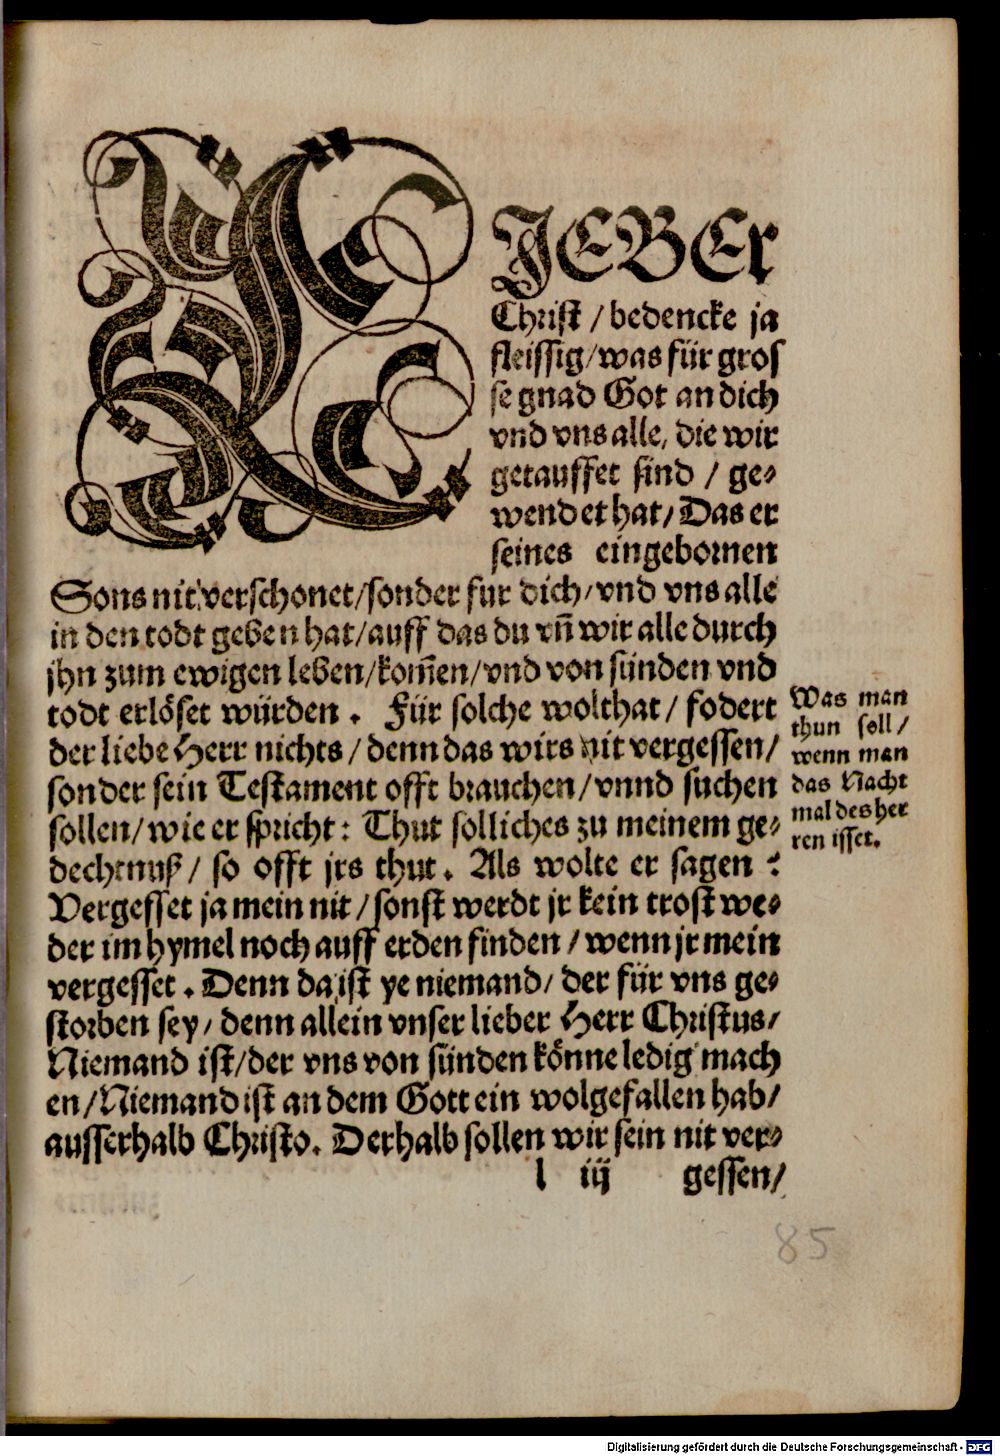 LJEBEr
Christ / bedencke ja
fleissig / was für gros
se gnad Got an dich
vnd vns alle, die wir
getauffet sind / ge-
wendet hat / Das er
seines eingebornen
Sons nit verschonet / sonder fur dich / vnd vns alle
in den todt geben hat / auff das du vñ wir alle durch
jhn zum ewigen leben / kom̄en / vnd von sünden vnd
todt erlöset würden . Für solche wolthat / fodert
der liebe Herr nichts / denn das wirs nit vergessen /
sonder sein Testament offt brauchen / vnnd suchen
sollen / wie er spricht : Thut solliches zu meinem ge-
dechtnuß / so offt jrs thut . Als wolte er sagen :
Vergesset ja mein nit / sonst werdt jr kein trost we-
der im hymel noch auff erden finden / wenn jr mein
vergesset . Denn da ist ye niemand / der für vns ge-
storben sey / denn allein vnser lieber Herr Christus /
Niemand ist / der vns von sünden könne ledig mach
en / Niemand ist an dem Gott ein wolgefallen hab /
ausserhalb Christo . Derhalb sollen wir sein nit ver-
l iij gessen /
Was man
thun soll /
wenn man
das Nacht
mal des her
ren isset.
85
Digitalisierung gefördert durch die Deutsche Forschungsgemeinschaft - DFG